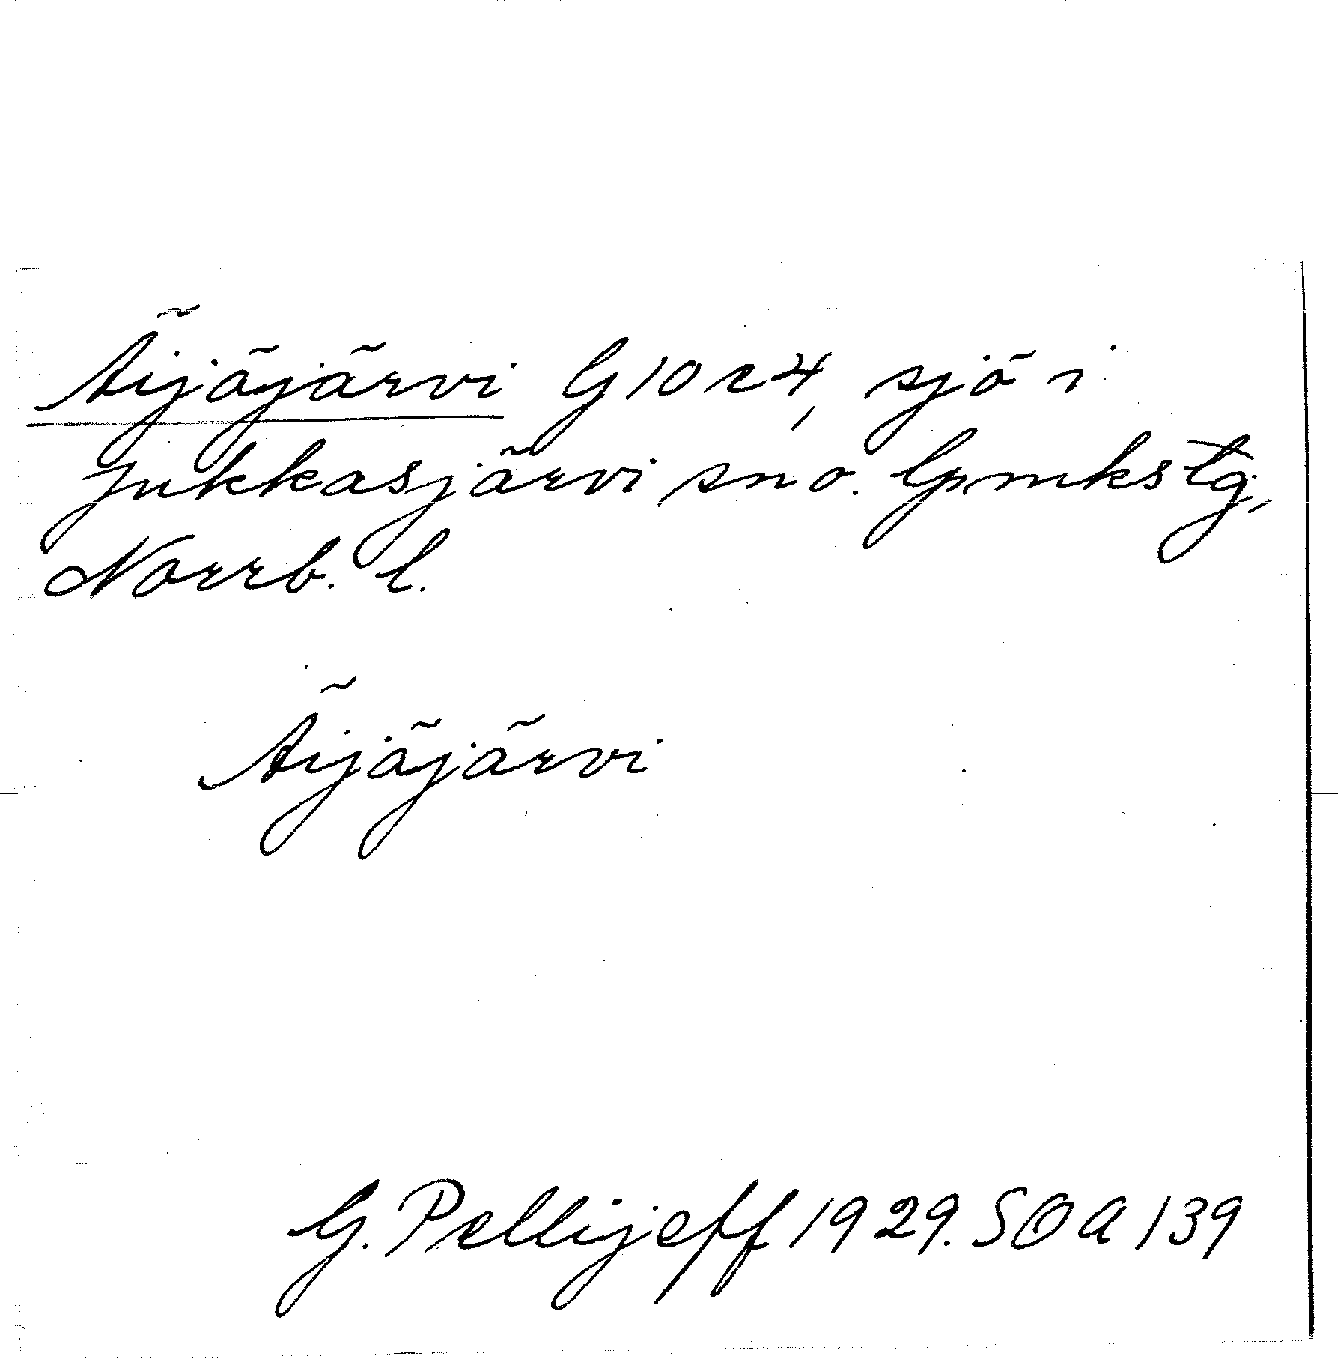 Äijäjärvi G10c4, sjö i
Jukkasjärvi sn o. lpmkstg,
Norrb. l.
Äijäjärvi
G. Pellijeff 1929. SOA 139